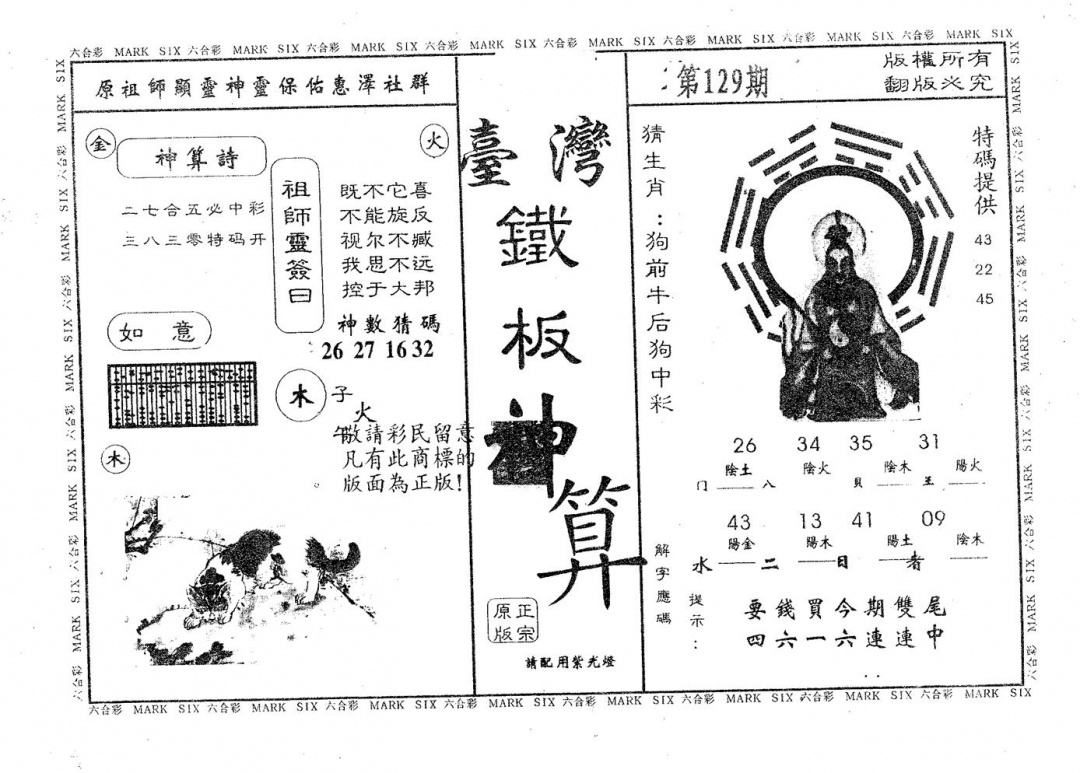 六合彩 MARK SIX 六合彩 MARK SIX 六合彩 MARK SIX 六合彩 MARK SIX 六合彩 MARK SIX 六合彩 MARK SIX 六合彩 MARK SIX 六合彩 MARK SIX
原祖師顯靈神靈保佑惠澤社群
金
火
神算詩
二七合五必中彩
三八三零特码开
祖師靈簽曰
既不它喜
不能旋反
视尔不臧
我思不远
控于大邦
神數猜碼
26 27 16 32
如意
木
子
火
午
敬請彩民留意
凡有此商標的
版面為正版!
木
臺灣
鐵
板
神
算
正宗
原版
請配用紫光燈
第129期
版權所有
翻版必究
猜生肖:狗前牛后狗中彩
特碼提供
43
22
45
26 34 35 31
陰土 陰火 陰木 陽火
门 八 貝 王
43 13 41 09
陽金 陽木 陽土 陰木
水 二 日 者
解字應碼
提示:
要錢買今期雙尾
四六一六連連中
六合彩 MARK SIX 六合彩 MARK SIX 六合彩 MARK SIX 六合彩 MARK SIX 六合彩 MARK SIX 六合彩 MARK SIX 六合彩 MARK SIX 六合彩 MARK SIX